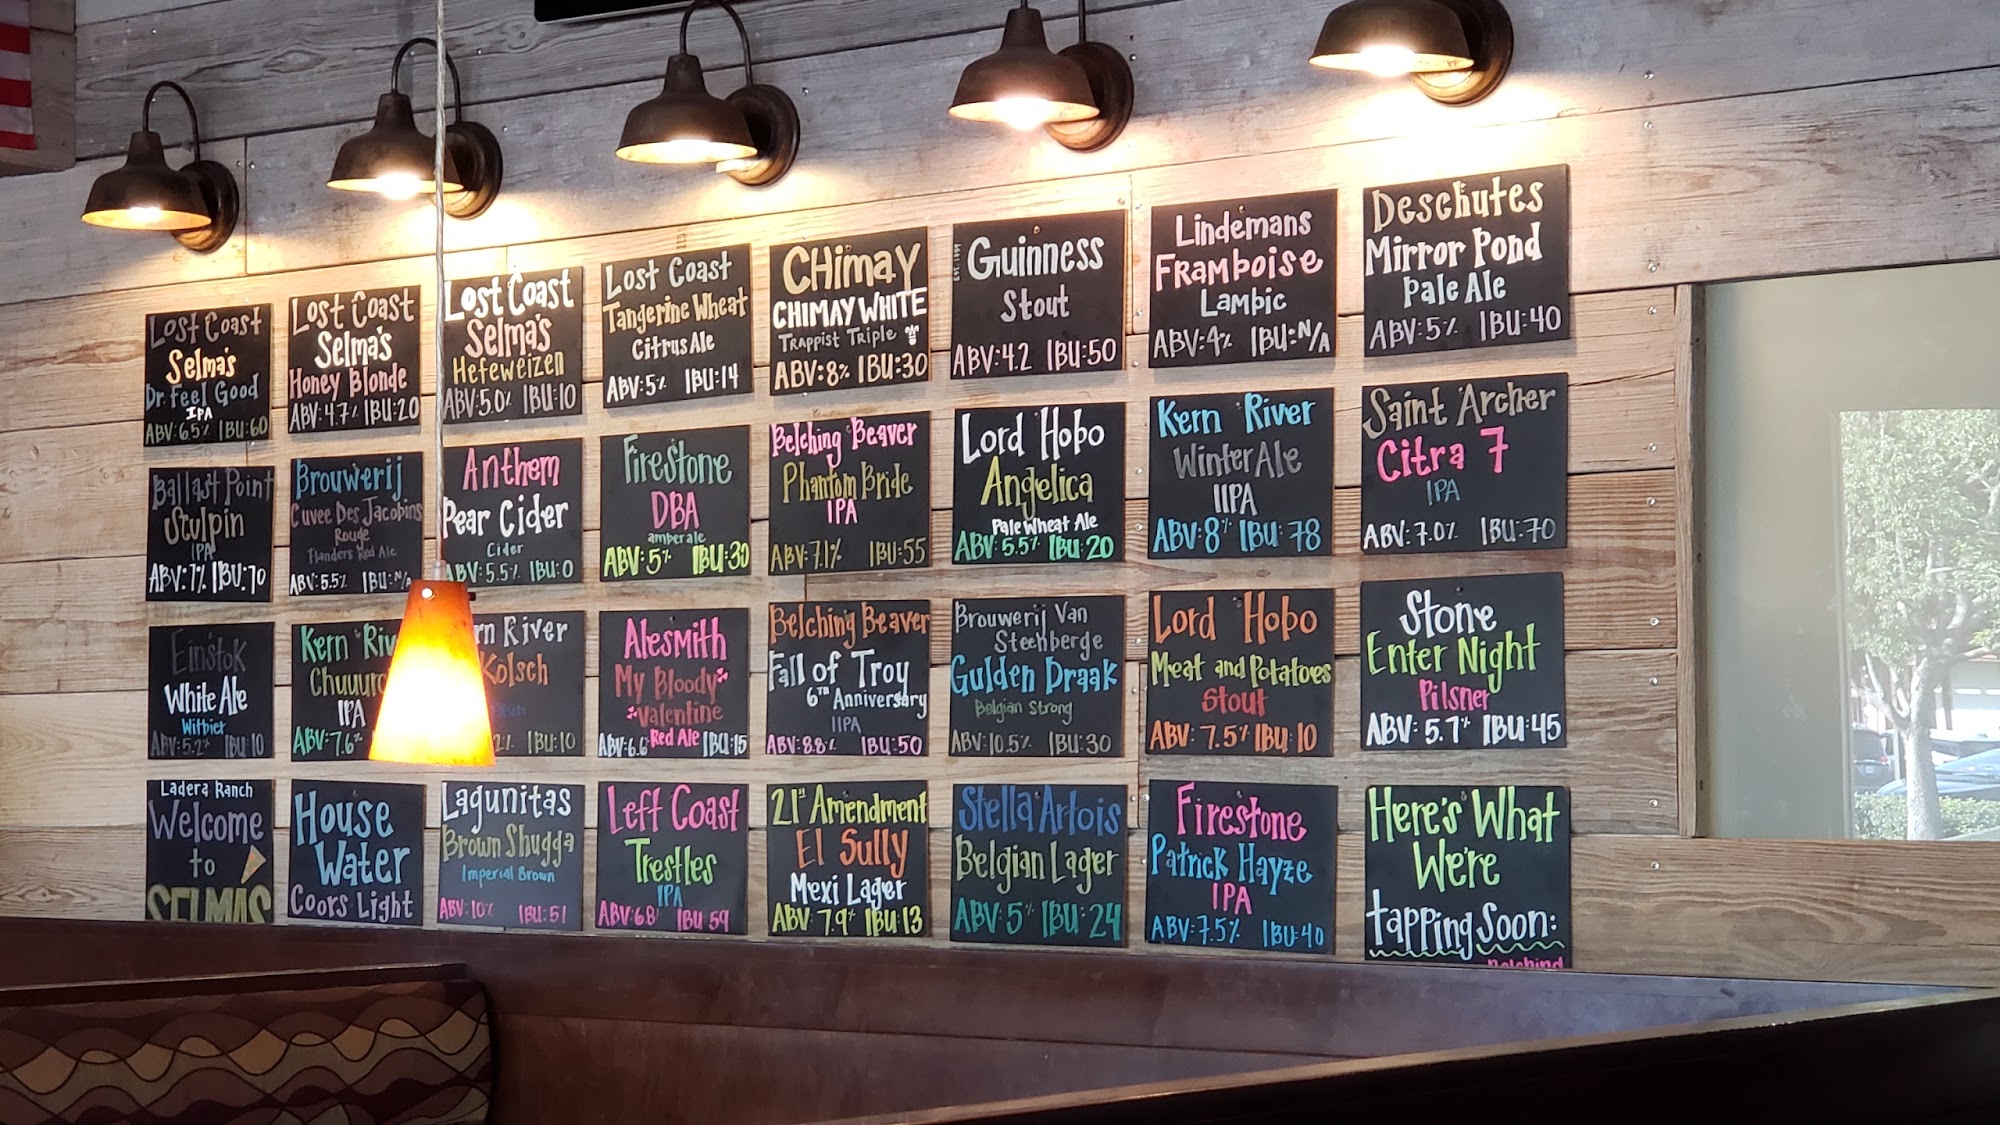 Lost Coast
Selma's
Dr. Feel Good
IPA
ABV: 6.5% IBU: 60
Lost Coast
Selma's
Honey Blonde
ABV: 4.7% IBU: 20
Lost Coast
Selma's
Hefeweizen
ABV: 5.0% IBU: 10
Lost Coast
Tangerine Wheat
Citrus Ale
ABV: 5% IBU: 14
CHimaY
CHIMAY WHITE
Trappist Triple
ABV: 8% IBU: 30
Guinness
Stout
ABV: 4.2 IBU: 50
Lindemans
Framboise
Lambic
ABV: 4% IBU: N/A
Deschutes
Mirror Pond
Pale Ale
ABV: 5% IBU: 40
Ballast Point
Sculpin
IPA
ABV: 7% IBU: 70
Brouwerij
Cuvee Des Jacobins
Rouge
Flanders Red Ale
ABV: 5.5% IBU: N/A
Anthem
Pear Cider
Cider
ABV: 5.5% IBU: 0
Firestone
DBA
amber ale
ABV: 5% IBU: 30
Belching Beaver
Phantom Bride
IPA
ABV: 7.1% IBU: 55
Lord Hobo
Angelica
Pale Wheat Ale
ABV: 5.5% IBU: 20
Kern River
Winter Ale
IIPA
ABV: 8% IBU: 78
Saint Archer
Citra 7
IPA
ABV: 7.0% IBU: 70
Einstok
White Ale
Witbier
ABV: 5.2% IBU: 10
Kern Riv
Chuuurc
IPA
ABV: 7.6%
rn River
Kolsch
IBU: 10
Alesmith
My Bloody
Valentine
Red Ale
ABV: 6.6 IBU: 15
Belching Beaver
Fall of Troy
6th Anniversary
IIPA
ABV: 8.8% IBU: 50
Brouwerij Van
Steenberge
Gulden Draak
Belgian Strong
ABV: 10.5% IBU: 30
Lord Hobo
Meat and Potatoes
Stout
ABV: 7.5% IBU: 10
Stone
Enter Night
Pilsner
ABV: 5.7% IBU: 45
Ladera Ranch
Welcome
to
SELMAS
House
Water
Coors Light
Lagunitas
Brown Shugga
Imperial Brown
ABV: 10% IBU: 51
Left Coast
Trestles
IPA
ABV: 6.8% IBU 59
21st Amendment
El Sully
Mexi Lager
ABV: 7.9% IBU: 13
Stella Artois
Belgian Lager
ABV: 5% IBU: 24
Firestone
Patrick Hayze
IPA
ABV: 7.5% IBU: 40
Here's What
We're
tapping Soon:
Belching